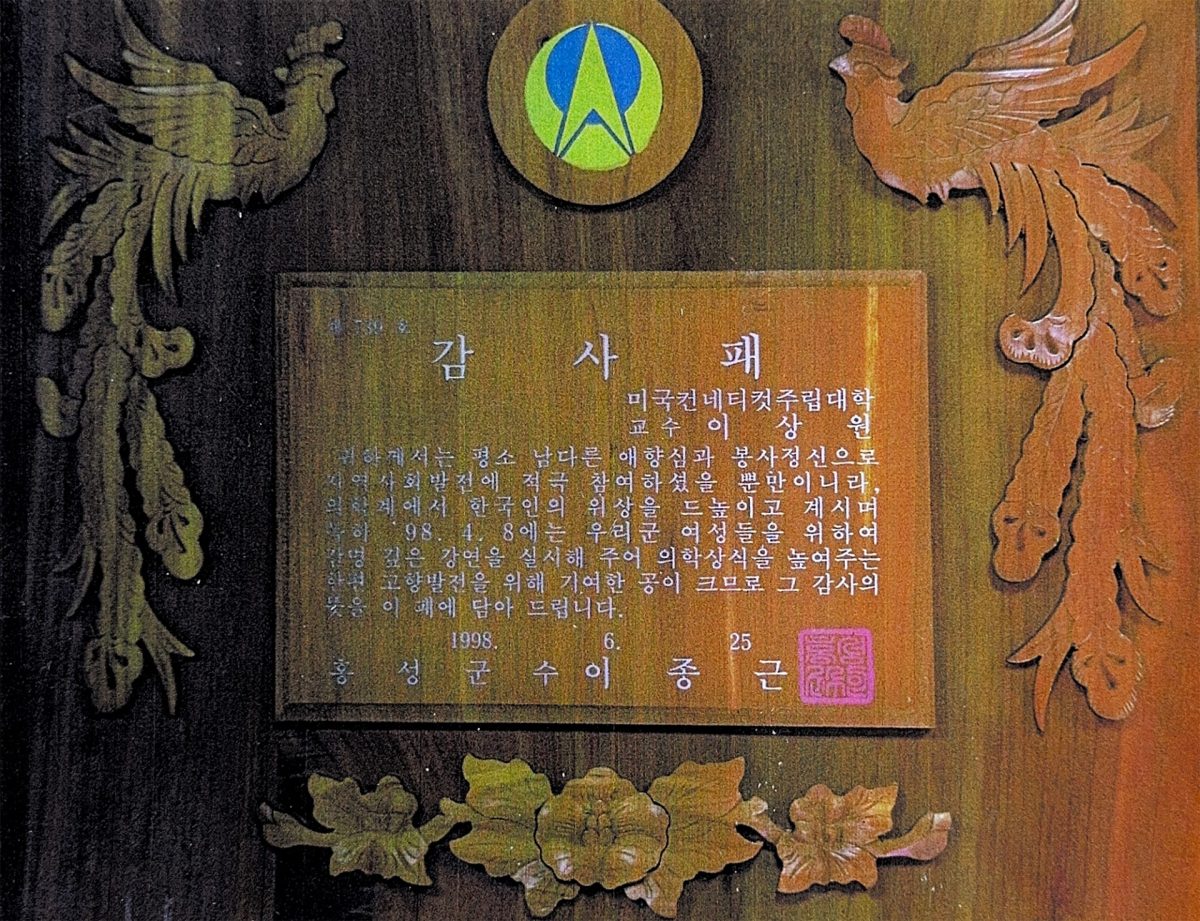 제 739 호
감 사 패
미국컨네티컷주립대학
교수 이 상 원
귀하께서는 평소 남다른 애향심과 봉사정신으로
지역사회발전에 적극 참여하셨을 뿐만이니라,
의학계에서 한국인의 위상을 드높이고 계시며
특히 '98. 4. 8에는 우리군 여성들을 위하여
감명 깊은 강연을 실시해 주어 의학상식을 높여주는
한편 고향발전을 위해 기여한 공이 크므로 그 감사의
뜻을 이 패에 담아 드립니다.
1998. 6. 25
홍 성 군 수 이 종 근